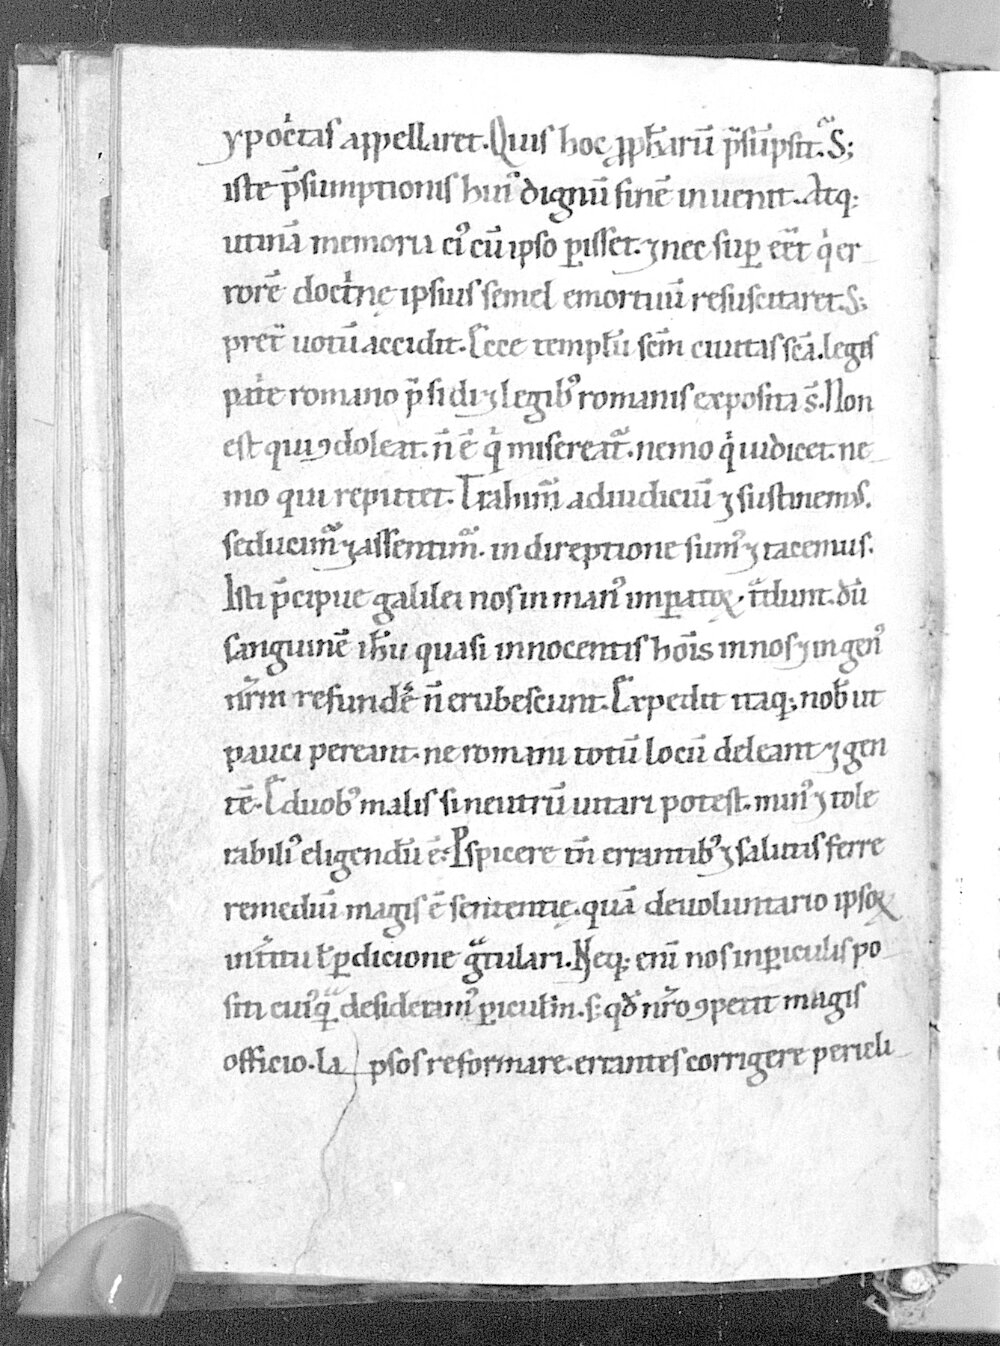 ypoc̾tas appellaret. Quis hoc ꝓph̄arū p̄sūpsit.ᷓ S;
iste p̄sumptionis hui᷒ dignū finē inuenit. Atq;
utinā memoria ei᷒ cū ipso ꝑisset. ⁊ nec suꝑ eēt qͥ er
rorē doctͥnę ipsius semel emortuū resuscitaret. S;
pret̄ uotū accidit. Ecce templū sc̄m ciuitas sc̄a. legis
pat̄e romano p̄sidi ⁊ legib᷒ romanis exposita s̄. Non
est qui ꝯdoleat. n̄ ē qͥ misereatᷣ. nemo qͥ iudicet. ne
mo qui reputet. Trahimᷣ ad iudiciū ⁊ sustinem᷒.
seducimᷣ ⁊ assentimᷣ. in direptione sum᷒ ⁊ tacemus.
Isti p̄cipue galilei nos in man᷒ imꝑatoꝝ. tᷓdunt. dū
sanguinē ih̄u quasi innocentis hōis in nos ⁊ in gen᷒
nr̄m refundē̾ n̄ erubescunt. Expedit itaq; nob̄ ut
pauci pereant. ne romani totū locū deleant ⁊ gen
tē. E duob᷒ malis si neutrū uitari potest. min᷒ ⁊ tole
rabili᷒ eligendū ē. Ꝓspicere tn̄ errantib᷒ ⁊ salutis ferre
remediū magis ē sententię. quā de uoluntario ipsoꝝ
int̾itu ł ꝑdicione gᷓtulari. Neq; enī nos in ꝑiculis po
siti cui᷒qᷓ desideram᷒ ꝑicul̄m. s; qd̄ nr̄o ꝯpetit magis
officio. la psos reformare. errantes corrigere pericli